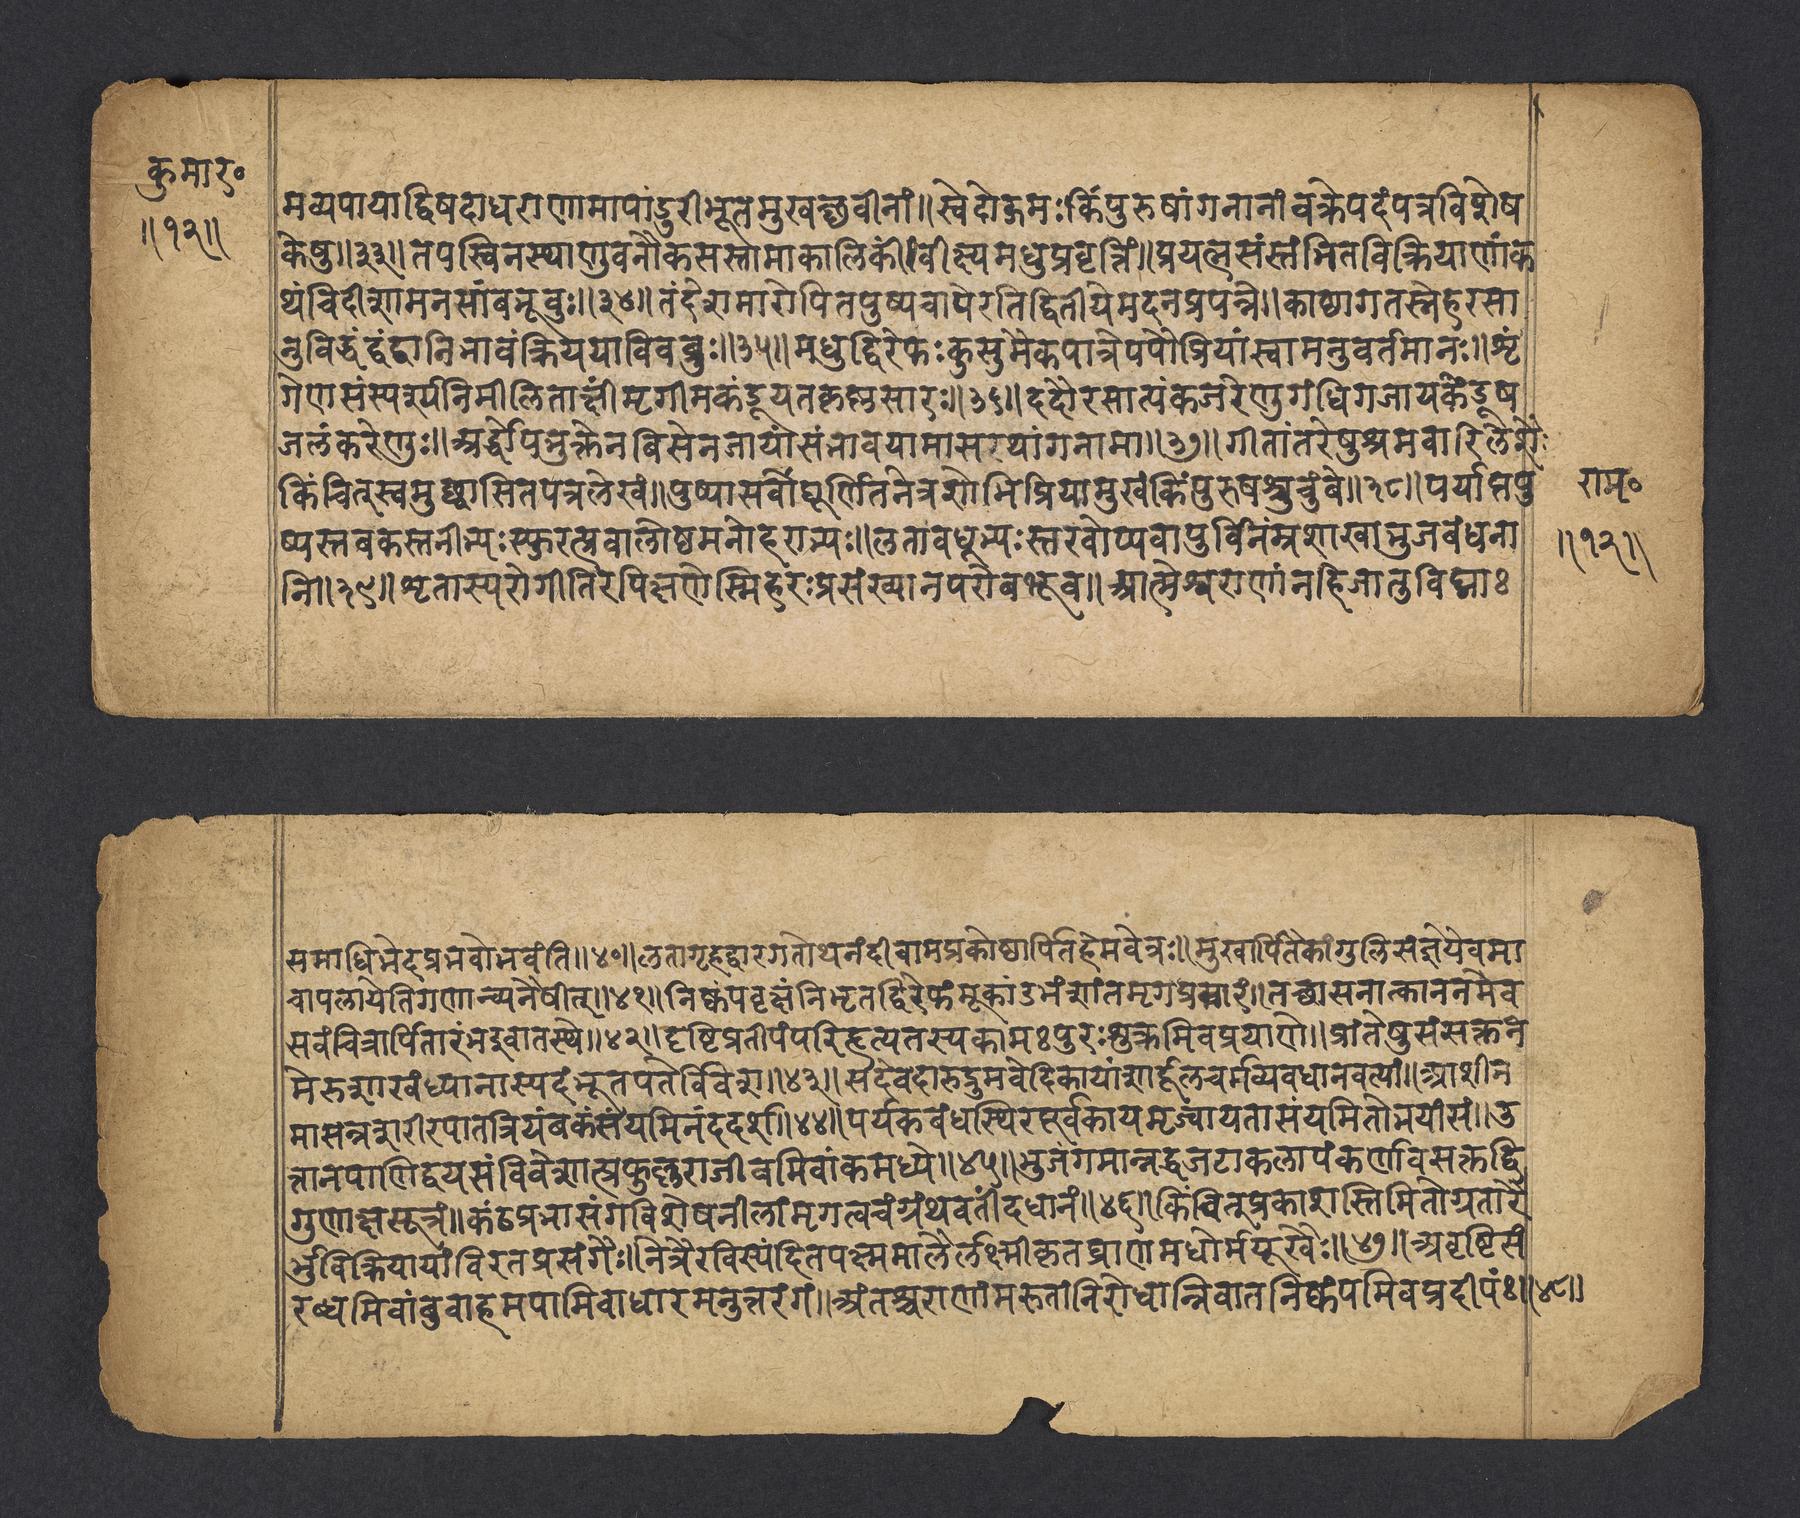 कुमार॰
॥१२॥
मव्यपायाद्विषदाधराणामापांडुरीभूतमुखच्छवीनां॥स्वेदोद्गमःकिंपुरुषांगनानांचक्रेपदंपत्रविशेष
केषु॥३३॥तपस्विनस्थाणुवनौकसस्तामाकालिकीं।वीक्ष्यमधुप्रवृत्तिं॥प्रयत्नसंस्तंभितविक्रियाणांक
थंचिदीशामनसांबभूवुः॥३४॥तंदेशमारोपितपुष्पचापेरतिद्वितीयेमदनेप्रपन्ने॥काष्ठागतस्नेहरसा
नुविद्धंद्वंद्वानिभावंक्रिययाविवव्रुः॥३५॥मधुद्विरेफःकुसुमैकपात्रेपपौप्रियांस्वामनुवर्तमानः॥शृं
गेणसंस्पर्शनिमीलिताक्षींमृगीमकंडूयतकृष्णसारः॥३६॥ददौरसात्पंकजरेणुगंधिगजायकंडूष
जलंकरेणुः॥अर्द्धोपभुक्तेनबिसेनजायांसंभावयामासरथांगनामा॥३७॥गीतांतरेषुश्रमवारिलेशैः
किंचित्स्वमुच्छ्वासितपत्रलेखं॥पुष्पासवोघूर्णितनेत्रशोभिप्रियामुखंकिंपुरुषश्चुचुंबे॥३८॥पर्याप्तपु
ष्पस्तबकस्तनीभ्यःस्फुरत्प्रवालौष्ठमनोहराभ्यः॥लतावधूभ्यःस्तरवोप्यवापुर्विनम्रशाखाभुजबंधना
नि॥३९॥श्रुताप्सरोगीतिरपिक्षणेस्मिहरःप्रसंख्यानपरोबभूव॥आत्मेश्वराणांनहिजातुविघ्नाः
राम॰
॥१२॥
समाधिभेदप्रभवोभवंति॥४०॥लतागृहद्वारगतोथनंदीवामप्रकोष्ठार्पितहेमवेत्रः॥मुखार्पितैकांगुलिसंज्ञयेवमा
चापलायेतिगणान्व्यनैषीत्॥४१॥निष्कंपवृक्षंनिभृतद्विरेफंमूकांडजंशांतमृगप्रचारं॥तच्छासनात्काननमेव
सर्वंचित्रार्पितारंभइवातस्थे॥४२॥दृष्टिप्रतीपंपरिहृत्यतस्यकामःपुरःशुक्रमिवप्रयाणे॥प्रांतेषुसंसक्तन
मेरुशाखंध्यानास्पदंभूतपतेर्विवेश॥४३॥सदेवदारुद्रुमवेदिकायांशार्दूलचर्मव्यवधानवत्यां॥आशीन
मासन्नशरीरपातत्रियंबकंसंयमिनंददर्श॥४४॥पर्यंकबंधस्थिरपूर्वकायमृज्वायतासंयमितोभयांसं॥उ
त्तानपाणिद्वयसंविवेशात्प्रफुल्लराजीवमिवांकमध्ये॥४५॥भुजंगमान्नद्धजटाकलापंकर्णावसक्तद्वि
गुणाक्षसूत्रं॥कंठप्रभासंगविशेषनीलांमृगत्वचंग्रंथवतींदधानं॥४६॥किंचित्प्रकाशस्तिमितोग्रतारै
र्भ्रुविक्रियायांविरतप्रसंगैः।नेत्रैरविस्पंदितपक्ष्ममालैर्लक्ष्मीकृतघ्राणमधोर्मयूखैः॥४७॥अवृष्टिसं
रंभमिवांबुवाहमपामिवाधारमनुत्तरंगं॥अंतश्चराणांमरुतांनिरोधान्निवातनिष्कंपमिवप्रदीपंः॥४८॥